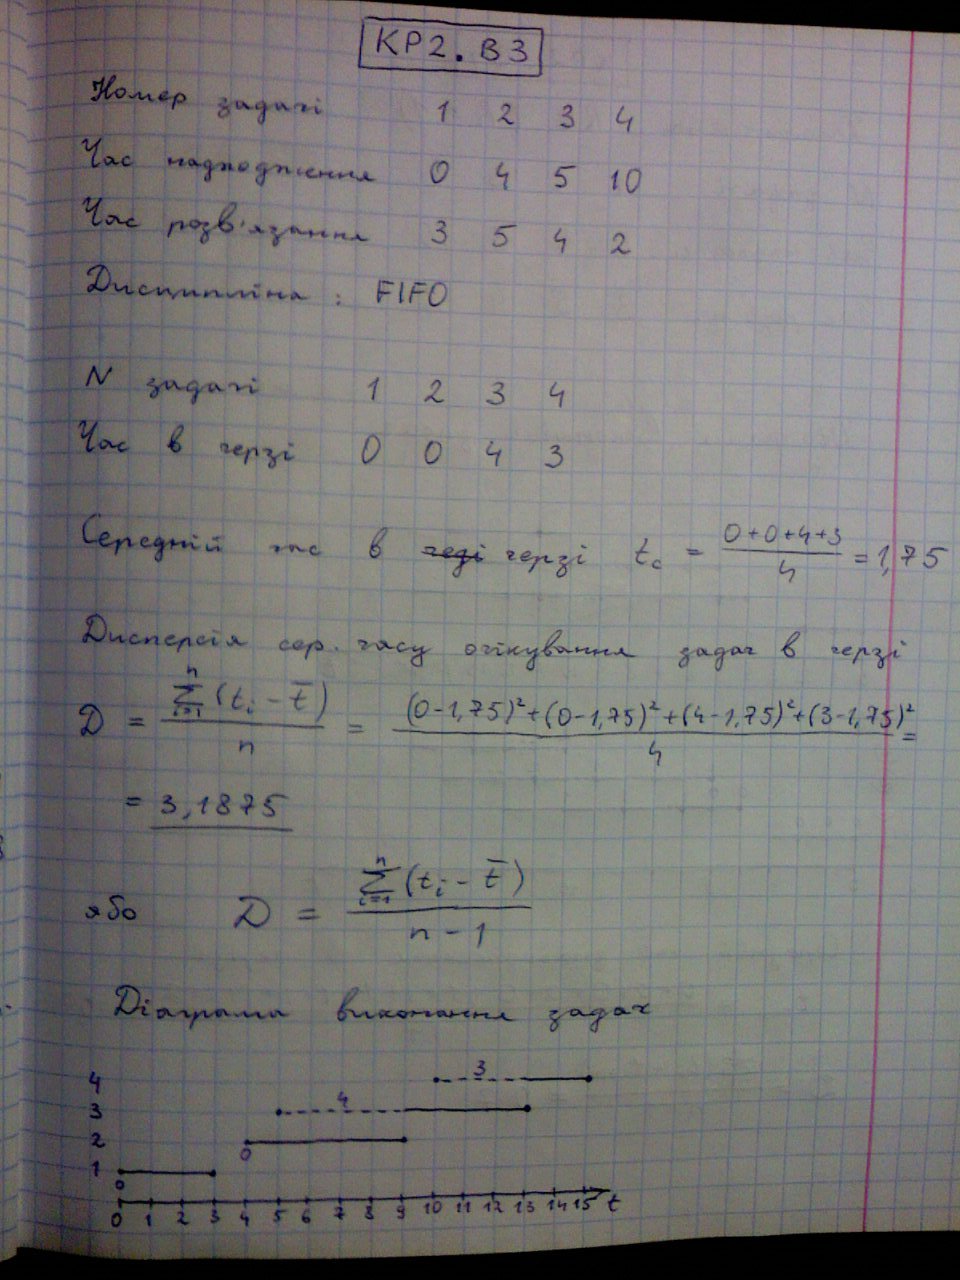 КР2. В3
Номер задачі 1 2 3 4
Час надходження 0 4 5 10
Час розв'язання 3 5 4 2
Дисципліна : FIFO
N задачі 1 2 3 4
Час в черзі 0 0 4 3
Середній час в черзі t_c = (0+0+4+3)/4 = 1,75
Дисперсія сер. часу очікування задач в черзі
D = Σ_{i=1}^{n} (t_i - t̅) / n = ((0-1,75)²+(0-1,75)²+(4-1,75)²+(3-1,75)²) / 4 =
= 3,1875
або D = Σ_{i=1}^{n} (t_i - t̅) / (n - 1)
Діаграма виконання задач
4 3
3 4
2 0
1 0
0 1 2 3 4 5 6 7 8 9 10 11 12 13 14 15 t